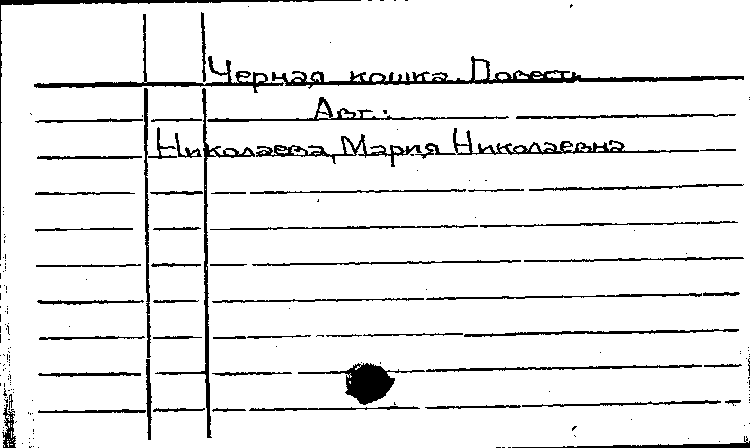 Черная кошка. Повесть
Авт.:
Николаева, Мария Николаевна